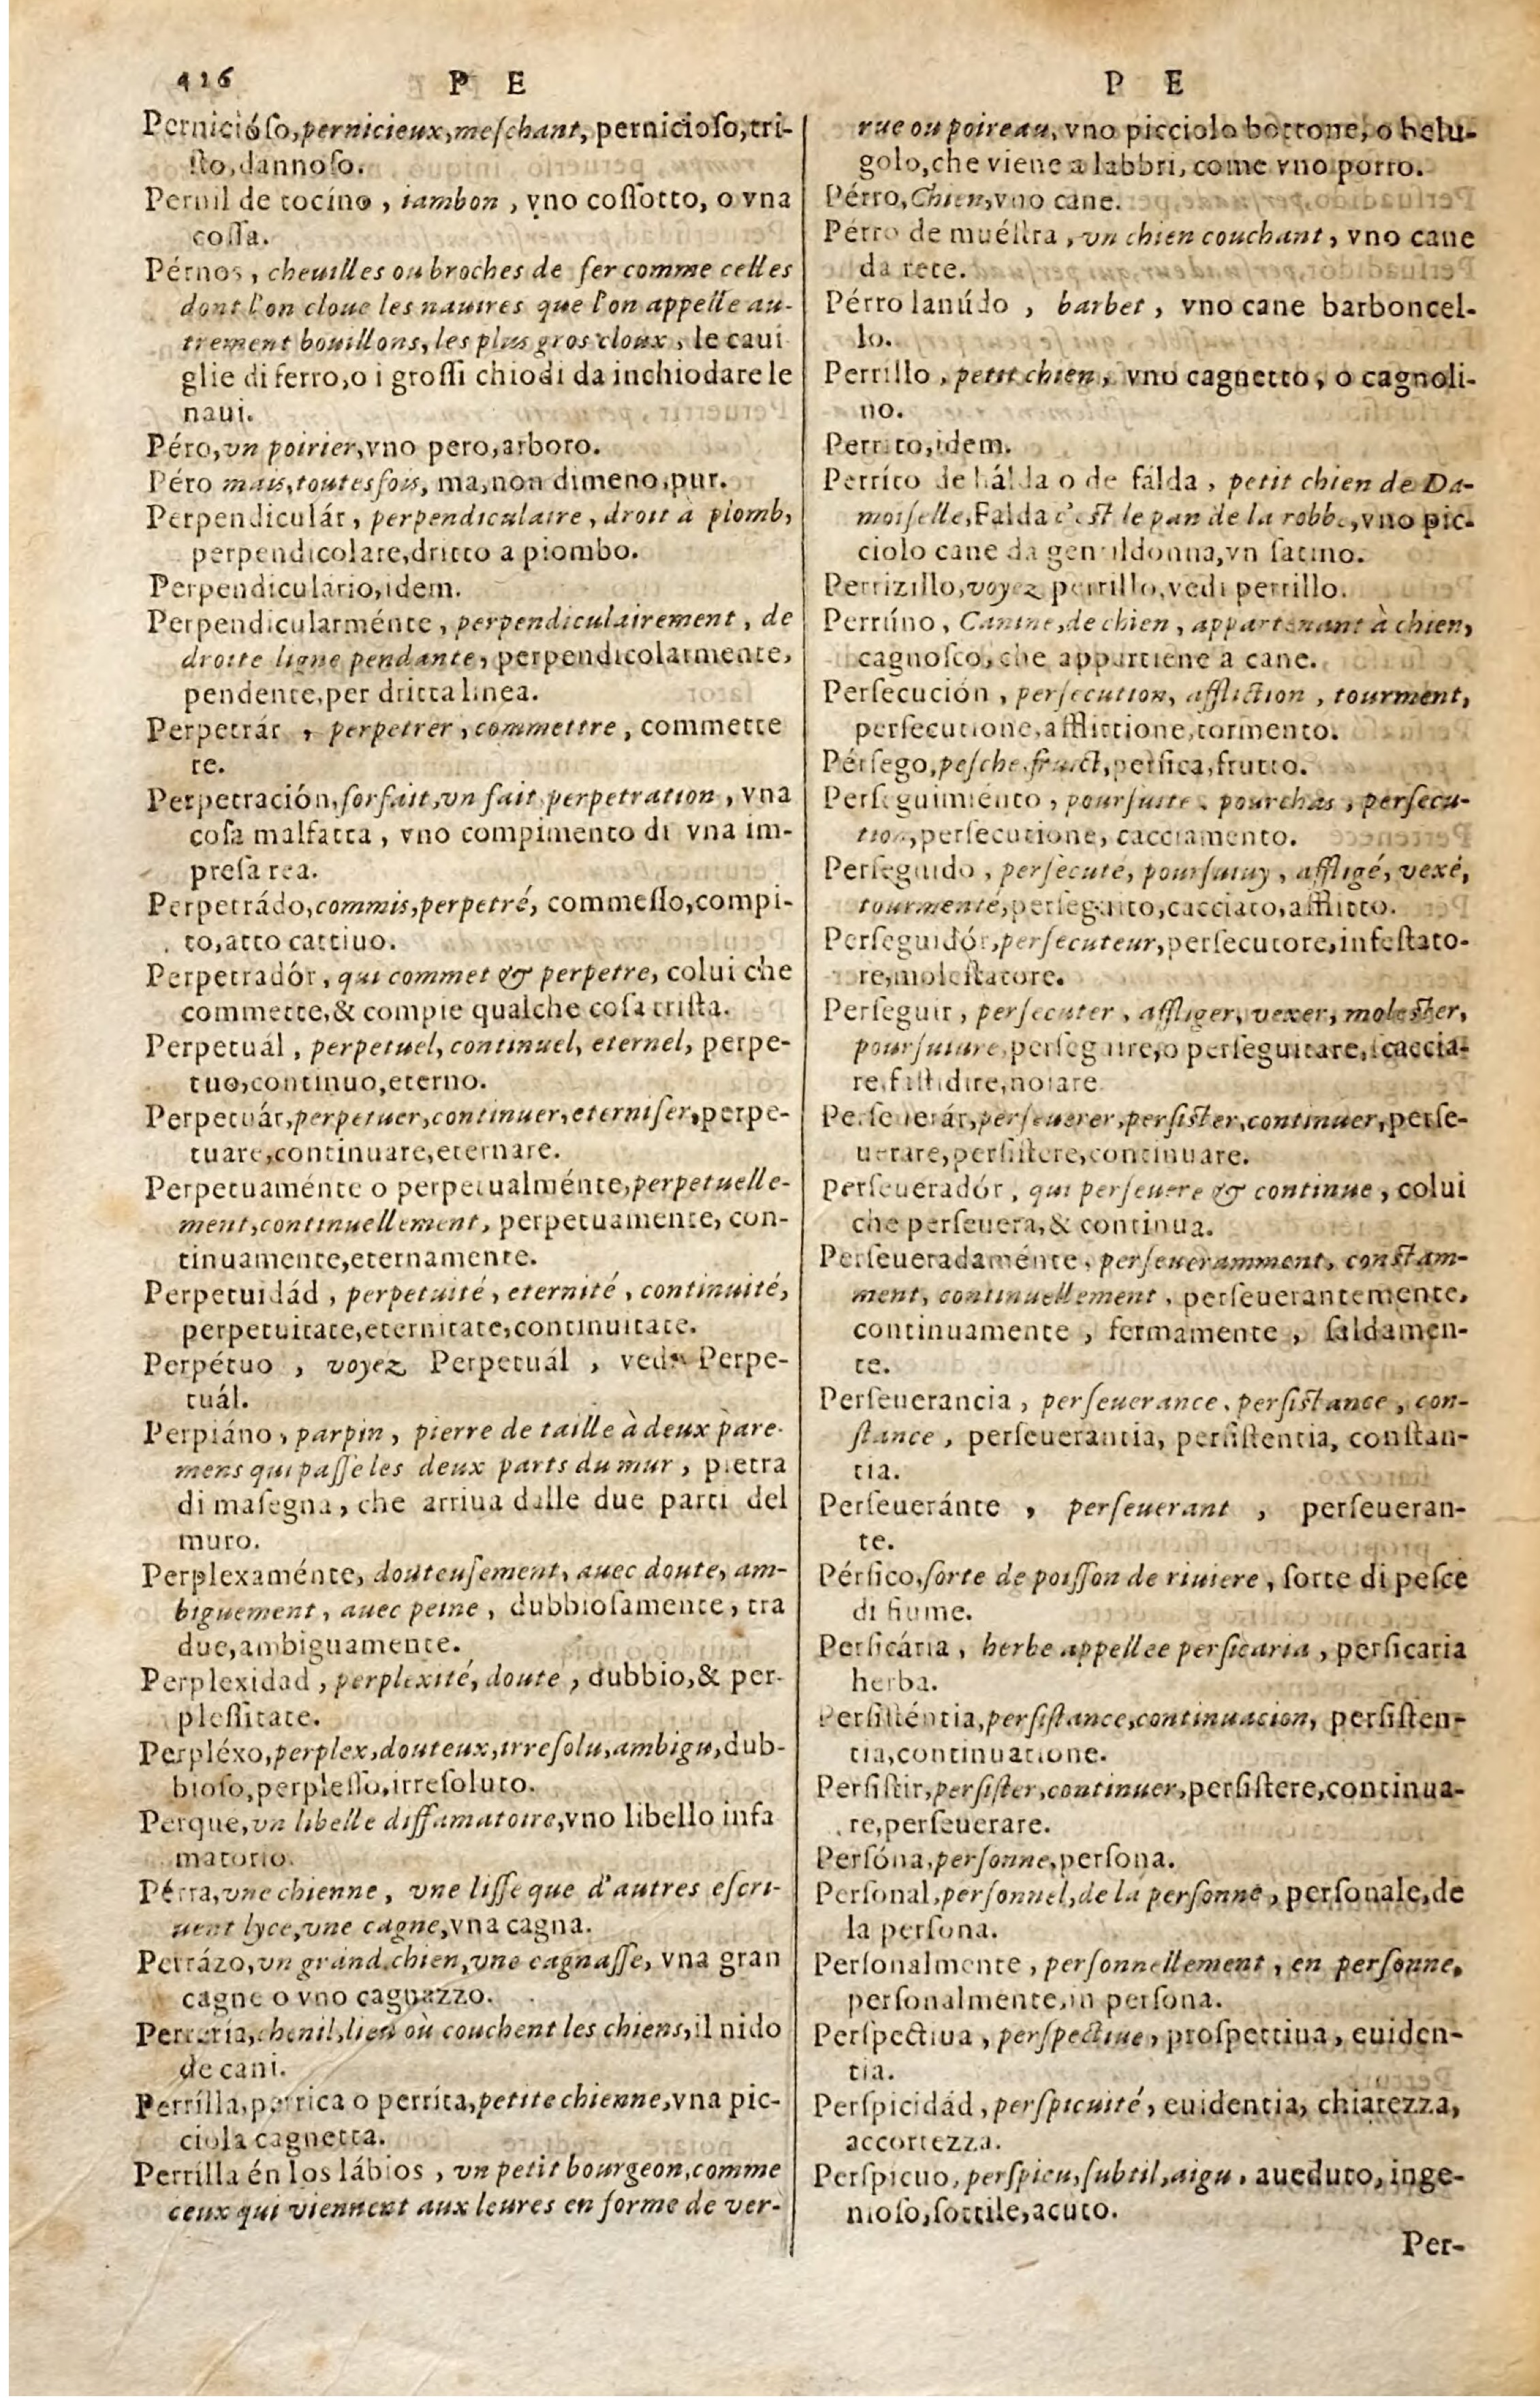 426 P E
Pernicióſo,pernicieux,meſchant, pernicioſo,tri-
ſto,dannoſo.
Pernil de tocíno , iambon , vno coſſotto, o vna
coſſa.
Pérnos , cheuilles ou broches de fer comme celles
dont l'on cloue les nauires que l'on appelle au-
trement bouillons, les plus gros cloux , le caui
glie di ferro,o i groſſi chiodi da inchiodare le
naui.
Péro,vn poirier,vno pero,arboro.
Péro mais,toutesfois, ma,non dimeno,pur.
Perpendiculár , perpendiculaire , droit à plomb,
perpendicolare,dritto a piombo.
Perpendiculario,idem.
Perpendicularménte , perpendiculairement , de
droite ligne pendante, perpendicolarmente,
pendente,per dritta linea.
Perpetrár , perpetrer , commettre , commette
re.
Perpetración,forfait,vn fait perpetration , vna
coſa malfatta , vno compimento di vna im-
preſa rea.
Perpetrádo,commis,perpetré, commeſſo,compi-
to,atto cattiuo.
Perpetradór , qui commet & perpetre, colui che
commette,& compie qualche coſa triſta.
Perpetuál , perpetuel, continuel, eternel, perpe-
tuo,continuo,eterno.
Perpetuár,perpetuer,continuer,eterniſer,perpe-
tuare,continuare,eternare.
Perpetuaménte o perpetualménte,perpetuelle-
ment,continuellement, perpetuamente, con-
tinuamente,eternamente.
Perpetuidád , perpetuité , eternité , continuité,
perpetuitate,eternitate,continuitate.
Perpétuo , voyez Perpetuál , vedi Perpe-
tuál.
Perpiáno , parpin , pierre de taille à deux pare-
mens qui paſſe les deux parts du mur , pietra
di maſegna , che arriua dalle due parti del
muro.
Perplexaménte, douteuſement, auec doute, am-
biguement , auec peine , dubbioſamente, tra
due,ambiguamente.
Perplexidad , perplexité, doute , dubbio,& per-
pleſſitate.
Perpléxo,perplex,douteux,irreſolu,ambigu,dub-
bioſo,perpleſſo,irreſoluto.
Perque,vn libelle diffamatoire,vno libello infa
matorio.
Pérra,vne chienne , vne liſſe que d'autres eſcri-
uent lyce,vne cagne,vna cagna.
Perrázo,vn grand chien,vne cagnaſſe, vna gran
cagne o vno cagnazzo.
Perrería,chenil,lieu où couchent les chiens,il nido
de cani.
Perrílla,perrica o perríta,petite chienne,vna pic-
ciola cagnetta.
Perrílla én los lábios , vn petit bourgeon,comme
ceux qui viennent aux leures en forme de ver-
P E
rue ou poireau, vno picciolo bottone, o belu-
golo,che viene a labbri, come vno porro.
Pérro,Chien,vno cane.
Pérro de muéſtra , vn chien couchant , vno cane
da rete.
Pérro lanúdo , barbet , vno cane barboncel-
lo.
Perrillo , petit chien , vno cagnetto, o cagnoli-
no.
Perrito,idem.
Perríto de hálda o de fálda , petit chien de Da-
moiſelle,Falda c'eſt le pan de la robbe,vno pic-
ciolo cane da gentildonna,vn fatino.
Perrizillo,voyez perrillo,vedi perrillo.
Perrúno , Canine,de chien , appartenant à chien,
cagnoſco, che appartiene a cane.
Perſecución , perſecution, affliction , tourment,
perſecutione,afflittione,tormento.
Pérſego,peſche,fruict,perſica,frutto.
Perſeguimiénto , pourſuite , pourchas , perſecu-
tion,perſecutione, cacciamento.
Perſeguido , perſecuté, pourſuiuy , affligé, vexé,
tourmenté,perſeguito,cacciato,afflitto.
Perſeguidór,perſecuteur,perſecutore,infeſtato-
re,moleſtatore.
Perſeguir , perſecuter , affliger, vexer, moleſter,
pourſuiure,perſeguire,o perſeguitare,ſcaccia-
re,faſtidire,noiare
Perſeuerár,perſeuerer,perſiſter,continuer,perſe-
uerare,perſiſtere,continuare.
Perſeueradór , qui perſeuere & continue , colui
che perſeuera,& continua.
Perſeueradaménte , perſeueramment, conſtam-
ment, continuellement , perſeuerantemente,
continuamente , fermamente , ſaldamen-
te.
Perſeuerancia , perſeuerance, perſiſtance , con-
ſtance , perſeuerantia, perſiſtentia, conſtan-
tia.
Perſeueránte , perſeuerant , perſeueran-
te.
Pérſico,ſorte de poiſſon de riuiere , ſorte di peſce
di fiume.
Perſicária , herbe appellee perſicaria , perſicaria
herba.
Perſiſténtia,perſiſtance,continuacion, perſiſten-
tia,continuatione.
Perſiſtir,perſiſter,continuer,perſiſtere,continua-
re,perſeuerare.
Perſóna,perſonne,perſona.
Perſonal,perſonnel,de la perſonne , perſonale,de
la perſona.
Perſonalmente , perſonnellement , en perſonne,
perſonalmente,in perſona.
Perſpectiua , perſpectiue , proſpettiua , euiden-
tia.
Perſpicidád , perſpicuité , euidentia, chiarezza,
accortezza.
Perſpicuo, perſpicu,ſubtil,aigu , aueduto, inge-
nioſo,ſottile,acuto.
Per-